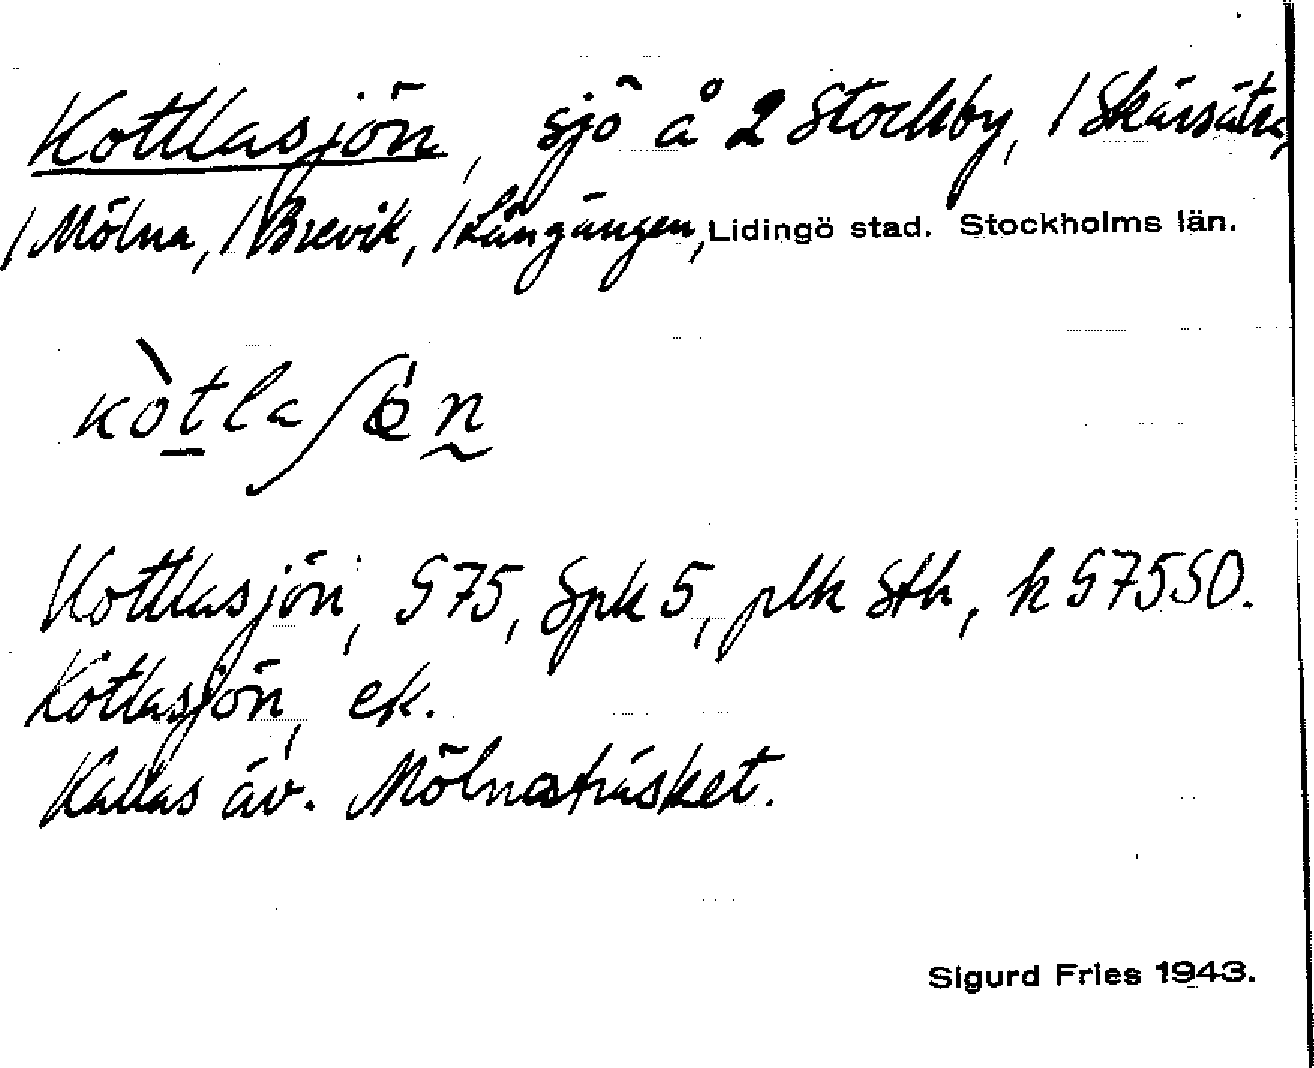 Kottlasjön, sjö å 2 Stockby, 1 Skärsätra,
1 Mölna, 1 Brevik, 1 Långängen, Lidingö stad. Stockholms län.
kòtlaʃön
Kottlasjön, G75, Spk 5, plk Sth, k G75SO.
Kotlasjön, ek.
Kallas äv. Mölnaträsket.
Sigurd Fries 1943.